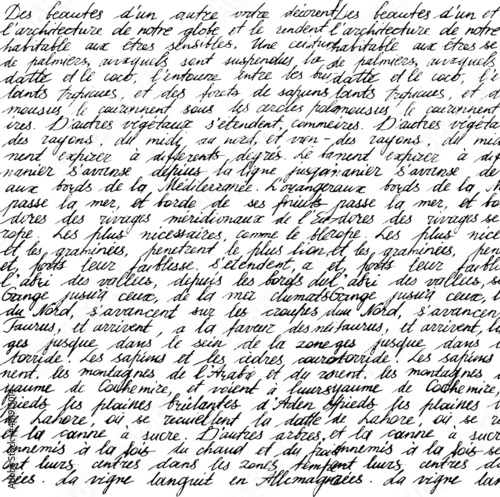 Des beautes d'un autre ordre décorent Des beautes d'un et
l'architecture de notre globe et le rendent l'architecture de notre
habitable aux êtres sensibles. Une ceinture habitable aux êtres se
de palmiers, auxquels sont suspendus la de palmiers, auxquels
datte et le coco, l'entoure entre les datte et le coco, l'
lants tropiques, et des forets de sapins lants tropiques, et d
mousus le couronnent sous les cercles mousus, le couronnent
ires. D'autres végétaux s'etendent, comme ires. D'autres végéta
des rayons, du midi au nord, et vien- des rayons, du mid
nent expirer à differents degrés. Le nent expirer à dif
nanier s'avanse depuis la ligne nanier s'avanse de
aux bords de la Mediterranée. L'oranger aux bords de la
passe la mer, et borde de ses fruits passe la mer, et bo
dires des rivages méridionaux de l' dires des rivages se
rope. Les plus nicessaires, comme le rope. Les plus nice
et les graminées, penetrent le plus lion, et les graminées, pene
et, forts leur faiblesse. s'etendent, a et, forts leur faibl
l'abri des vallées, depuis les bords du l'abri des vallées,
Gange jusqu'à ceux, de la mer Gange jusqu'à ceux,
du Nord, s'avancent sur les croupes du Nord, s'avancent
Taurus, et arrivent a la faveur des Taurus, et arrivent,
ges jusque dans le sein de la zone ges jusque dans
torride. Les sapins et les cèdres torride. Les sapins
nent, les montagnes de l'Arabie et du nent, les montagnes
yaume de Cachemire, et voient à leurs yaume de Cachemire,
pieds les plaines brûlantes d'Aden pieds les plaines
et Lahore, où se recueillent la datte de Lahore, où se re
et la canne à sucre. D'autres arbres, et la canne à su
ennemis à la fois du chaud et du ennemis à la fois
ont leurs centres dans les zones ont leurs, centres d
rées. La vigne languit en Allemagne rées. La vigne la